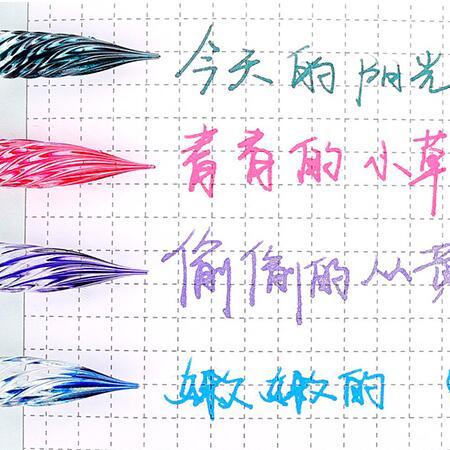 今天的阳光
青青的小草
偷偷的从黄
嫩嫩的